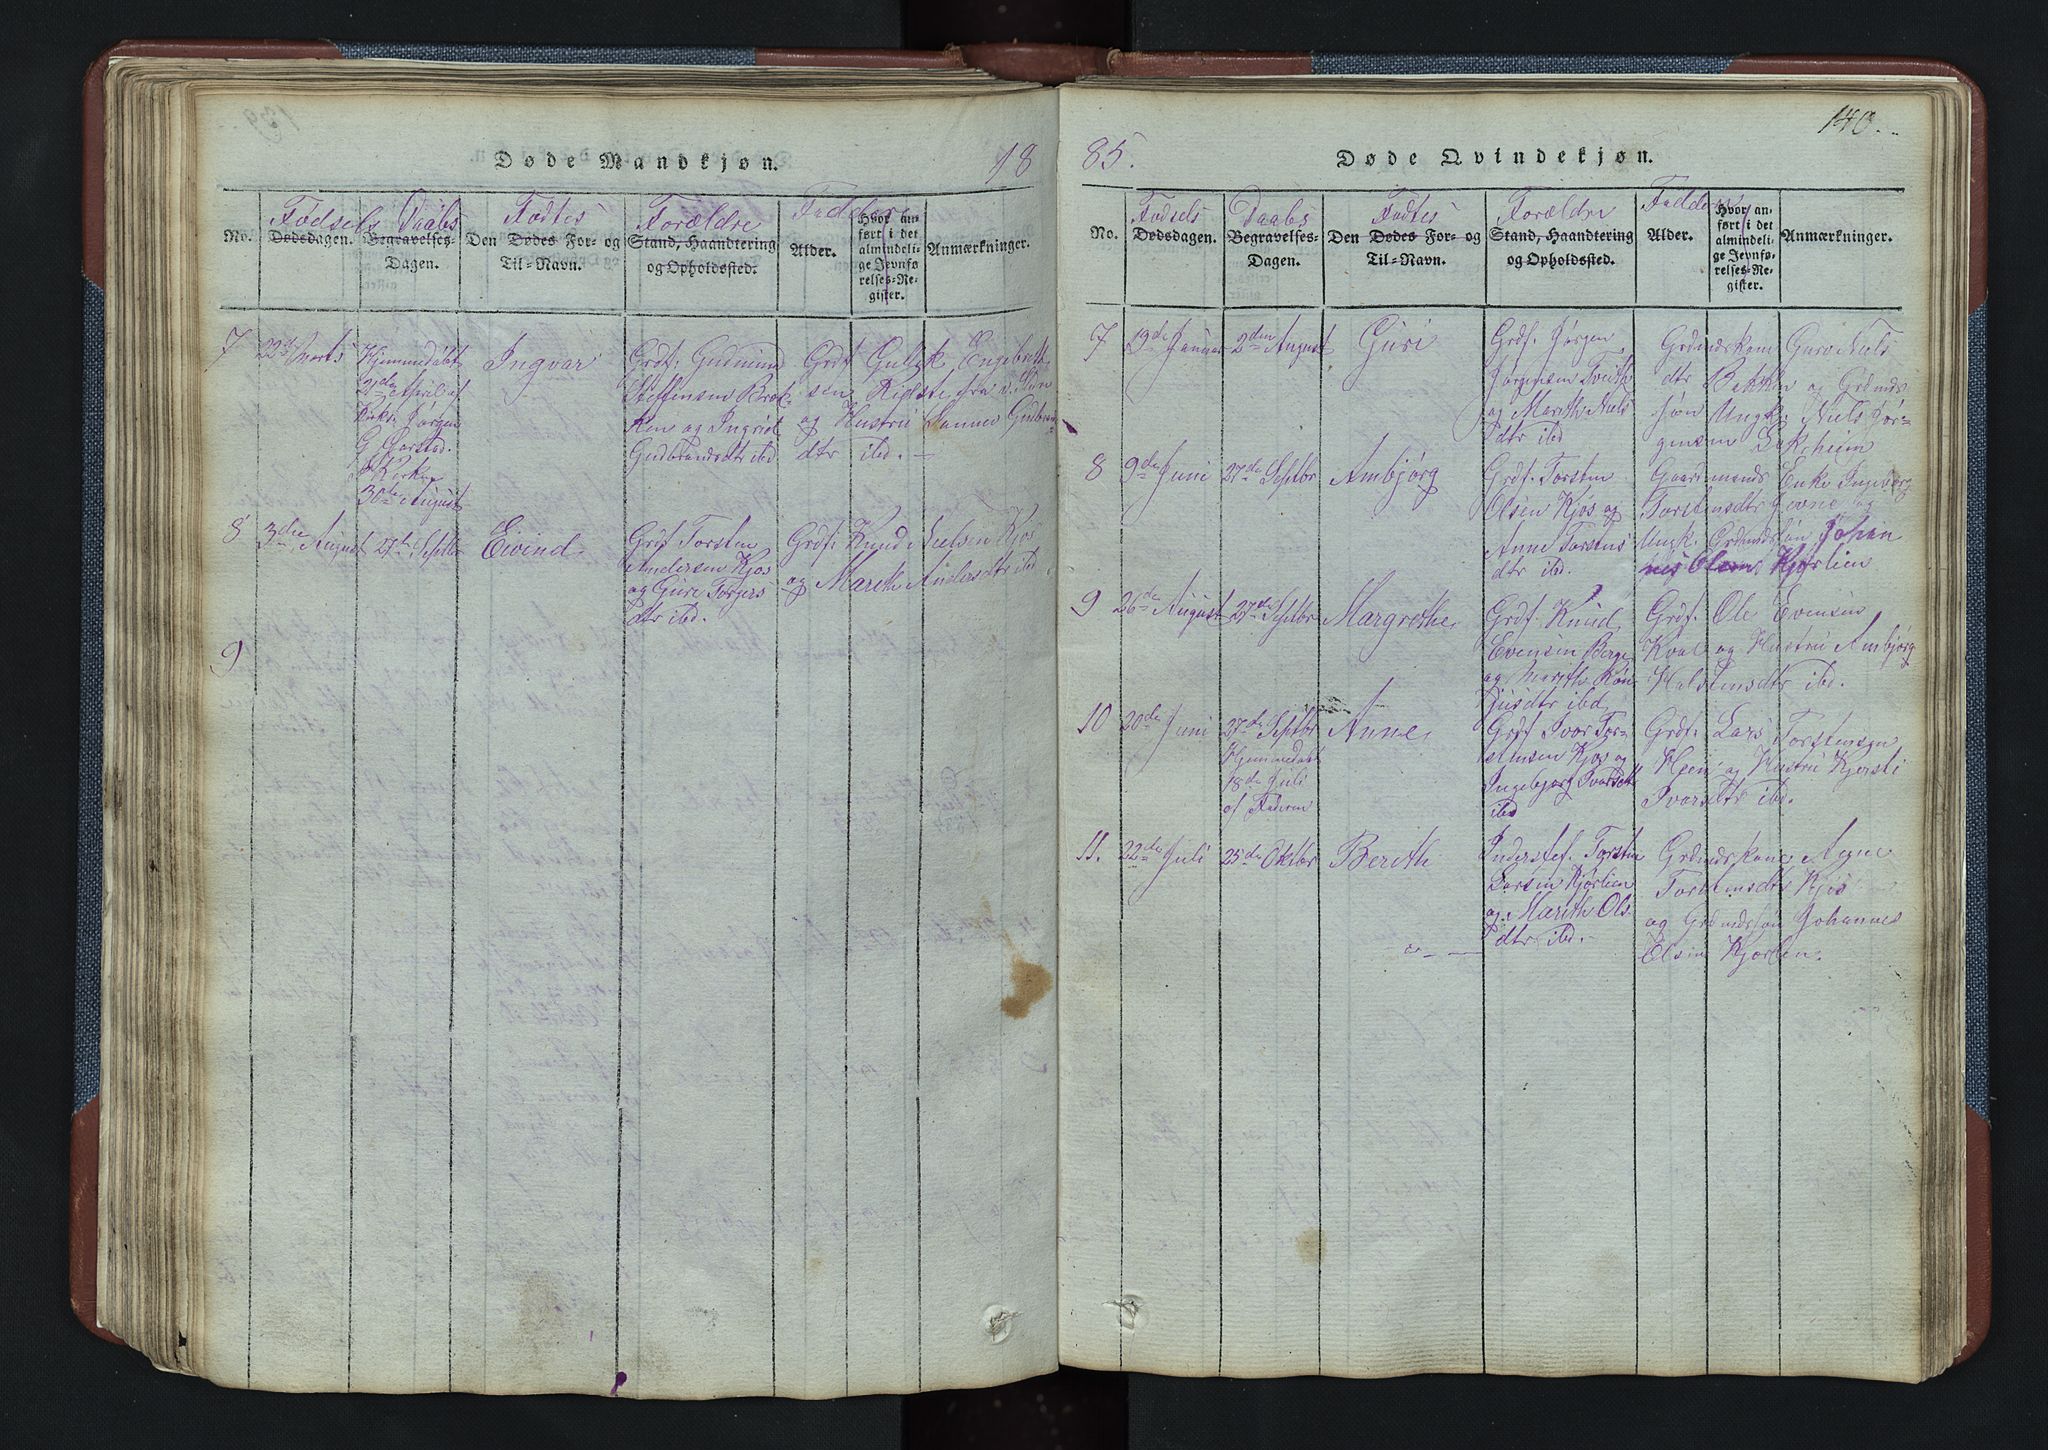 140.
Døde Mandkjøn.
18
Fødsels Daabs Fødtes Forældre Faddere
No. Dødsdagen. Begravelses-Dagen. Den Dødes For- og Til-Navn. Stand, Haandtering og Opholdssted. Alder. Hvor anført i det almindelige Jevnførelses-Register. Anmærkninger.
7 22de Marts Hjemmedøbt 2den April af Kirkes. Jørgen G. Garstad. I Kirken 30de August
Ingvar
Grdf. Gudmund
Steffensen Brek-
ken og Ingrid
Gudbrandsdtr ibd
Grdf Gullik Engebrett
sen Ridste fra
og Hustru Sanner Gudbrands-
dtr ibd. —
8 3die August 27de Septbr
Eivind
Grdf Torsten
Andersen Kjos
og Guri Torgers
dtr ibd.
Grdf. Knud Nielsen Kjos
og Marith Andersdtr ibd
9
85.
Døde Qvindekjøn.
Fødsels Daabs Fødtes Forældre Faddere
No. Dødsdagen. Begravelses-Dagen. Den Dødes For- og Til-Navn. Stand, Haandtering og Opholdssted. Alder. Hvor anført i det almindelige Jevnførelses-Register. Anmærkninger.
7 19de Januar 2den August
Guri
Grdf. Jørgen
Jørgensen Tveith
og Marith Niels
dtr ibd
Grdmdskone Guro Niels
dtr Bekken og Grdmds
søn Ungk. Niels Jør-
gensen
8 9de Juni 27de Septbr
Ambjørg
Grdf. Torsten
Olsen Kjos og
Anne Torstens
dtr ibd.
Gaardmands Enke Ingeborg
Torstensdtr Jevne og
Ungk. Grdmdssøn Johan
nes Olsens Kjørlien
9 26de August 27de Septbr
Margrethe
Grdf Knud
Evensen Berge
og Marith
dtr ibd.
Grdf. Ole Evensen
Kval og Hustru Ambjørg
Halstensdtr ibd.
10 20de Juni 27de Septbr
Hjemmedøbt
18de Juli
af Faderen
Anne
Grdf Ivar Tor-
stensen Kjos og
Ingebjørg Ivarsdtr
ibd
Grdf. Lars Torstensen
og Hustru Kjersti
Ivarsdtr ibd.
11. 22de Juli 25de Oktbr
Berith
Inderstef. Torsten
Larsen Kjørlien
og Marith Ols
dtr ibd.
Grdmdskone Agne
Torstensdtr Kjos
og Grdmdssøn Johannes
Olsen Kjørlien.